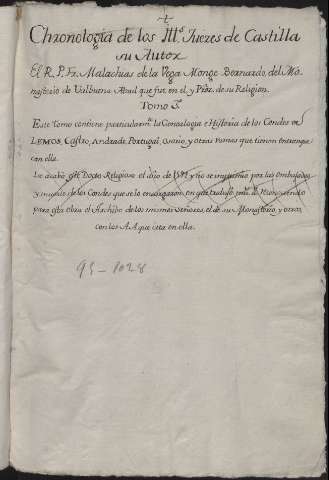 Chronologia de los Ill.s Juezes de Castilla
su Autor
El R. P. Fr. Malachias de la Vega Monge Bernardo, del Mo-
nasterio de Valbuena Abad que fue en el, y de su Religion.
Tomo 3.
Este tomo contiene la Genealogia e Historia de los Condes de
LEMOS, Castro, Andrade, Portugal, Osorio y otras Ramas que tienen
con ella.
Le acabó este Docto Religioso el año de y no se imprimio por las embajadas
y muerte de los Condes que se lo encargaron, en que trabajo
para esta obra el Archibo de los mismos Señores, el de su Monasterio, y otros
con los AA que cita en ella.
95-1028